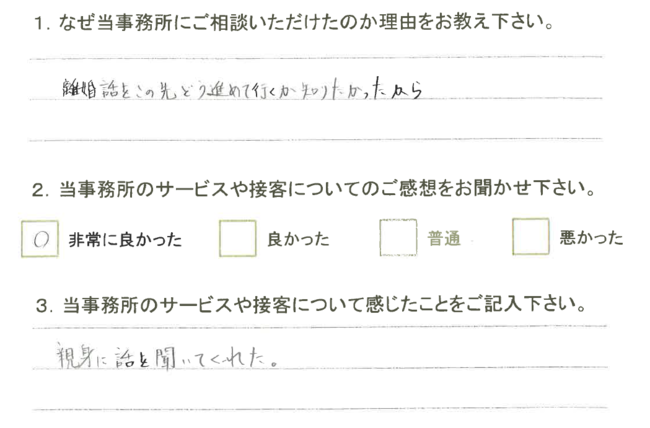 1. なぜ当事務所にご相談いただけたのか理由をお教え下さい。
離婚話をこの先どう進めて行くか知りたかったから
2. 当事務所のサービスや接客についてのご感想をお聞かせ下さい。
○ 非常に良かった 良かった 普通 悪かった
3. 当事務所のサービスや接客について感じたことをご記入下さい。
親身に話を聞いてくれた。